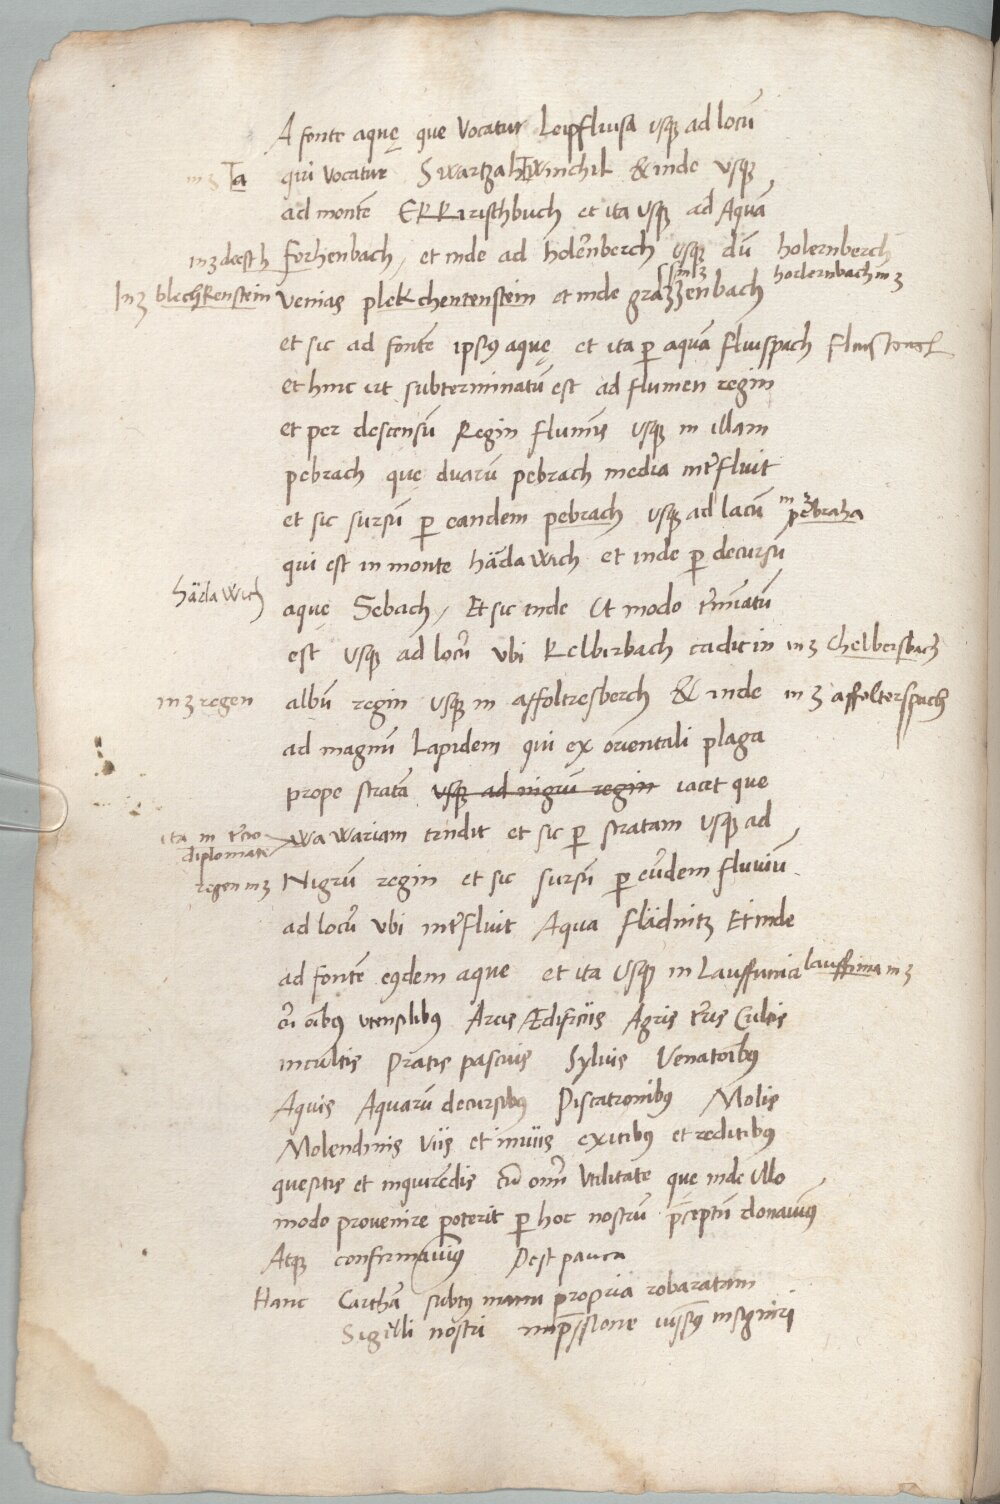 A fonte aquę que Vocatur Leipflusa usq̃ ad locũ
in 3 Ta qui vocatur Swartzahtwinchil & inde usq̃
ad montẽ Ekkirischbuch et ita usq̃ ad Aquã
forhenbach, et inde ad holẽrnberch usq̃ dũ holernberch
In 3 blechkenstein venias plekchentenstein et inde grazzenbach horlernbach in 3
et sic ad fontẽ ipsꝰ aquę et ita ꝑ aquã fluispach
et hinc ut subterminatũ est ad flumen regin
et per descensũ Regin fluminis usq̃ in illam
pebrach quę duarũ pebrach media int̃fluit
et sic sursũ ꝑ eandem pebrach usq̃ ad lacũ in 3 pebraha
qui est in monte hädawich et inde ꝑ decursũ
hädawich aquę Sebach, Et sic inde ut modo t̃minatũ
est usq̃ ad locũ ubi Kelbirbach cadit in in 3 Chelbersbach
in 3 regen albũ regin usq̃ in affoltresberch & inde in 3 affolterspach
ad magnũ Lapidem qui ex orientali plaga
prope stratã usq̃ ad nigrũ regin iacet que
ita in t̃cio diplomate wawariam tendit et sic ꝑ stratam usq̃ ad
regen in 3 Nigrũ regin et sic sursũ ꝑ eũdem fluviũ
ad locũ ubi int̃fluit Aqua flädnitz Et inde
ad fontẽ eꝰdem aque et ita usq̃ in Lauffinia lauffinia in 3
cũ oĩbꝰ utensilibꝰ Areis Ædificiis Agris t̃ris Cultis
incultis Pratis pascuis Sylvis Venatoibꝰ
Aquis Aquarũ decursibꝰ Piscationibꝰ Molis
Molendinis viis et inviis exitibꝰ et reditibꝰ
quesitis et inquirẽdis cũ omĩ utilitate que inde ullo
modo provenire poterit ꝑ hoc nostrũ p̃ceptũ donavimꝰ
Atq̃ confirmavimꝰ Post pauca
Hanc Carthã subtꝰ manu propria roboratam
Sigilli nostri imp̃ssione iussimꝰ insigniri